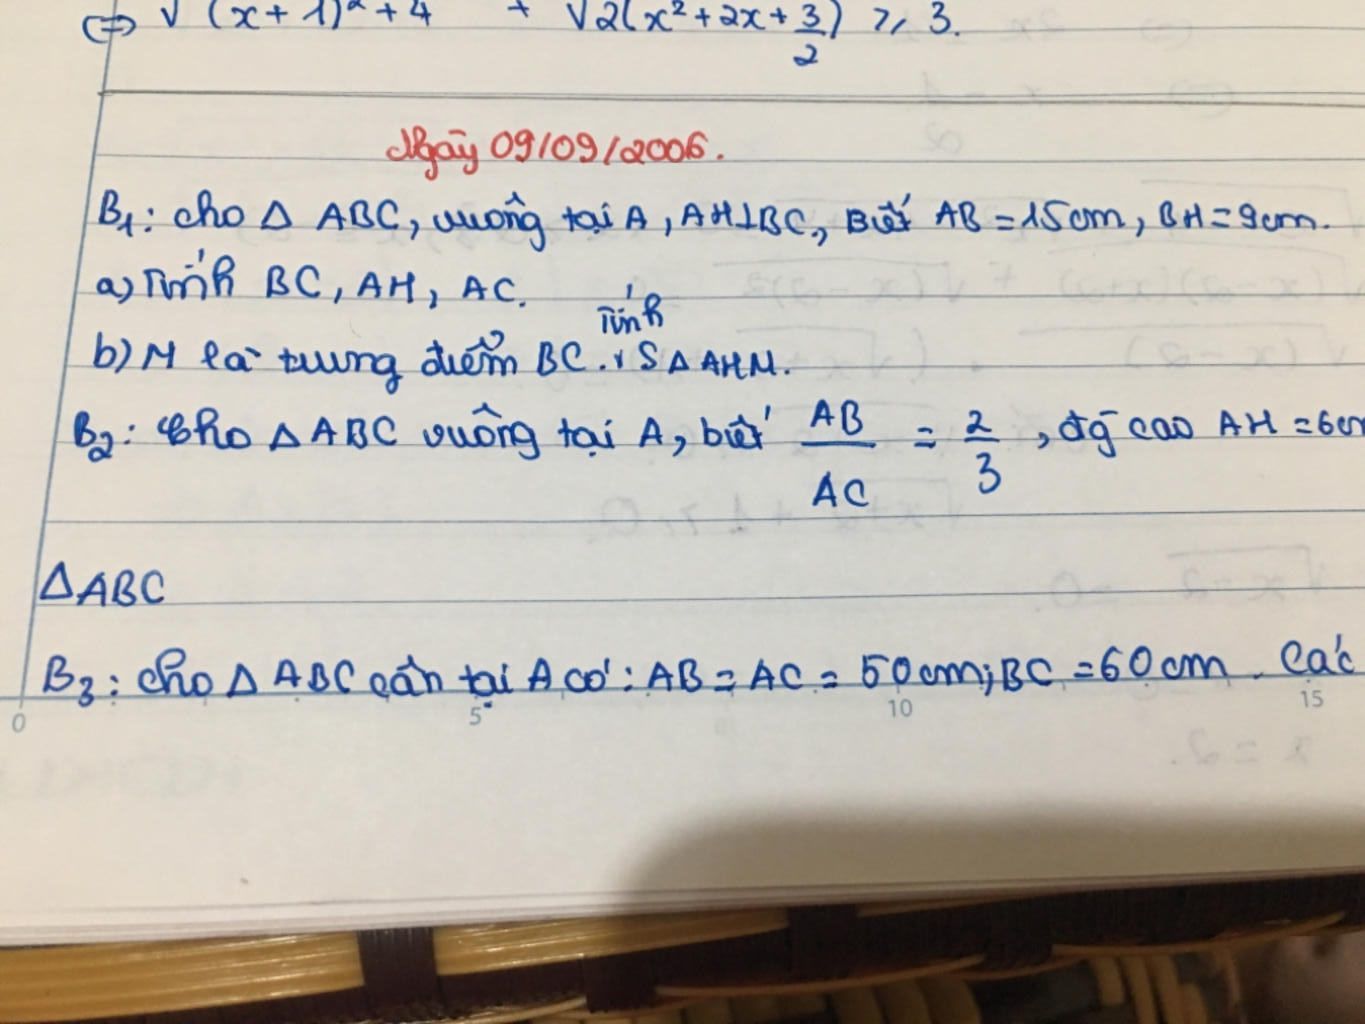 ⇔ √(x+1)² + 4 + √2(x² + 2x + 3/2) ⩾ 3.
Ngày 09/09/2006.
B1: cho Δ ABC, vuông tại A, AH⊥BC, Biết AB = 15cm, BH = 9cm.
a) Tính BC, AH, AC.
b) M là trung điểm BC. Tính SΔ AHM.
B2: Cho Δ ABC vuông tại A, biết AB/AC = 2/3, đg cao AH = 6cm
ΔABC
B3: cho Δ ABC cân tại A có: AB = AC = 50cm; BC = 60cm. Các
0 5 10 15